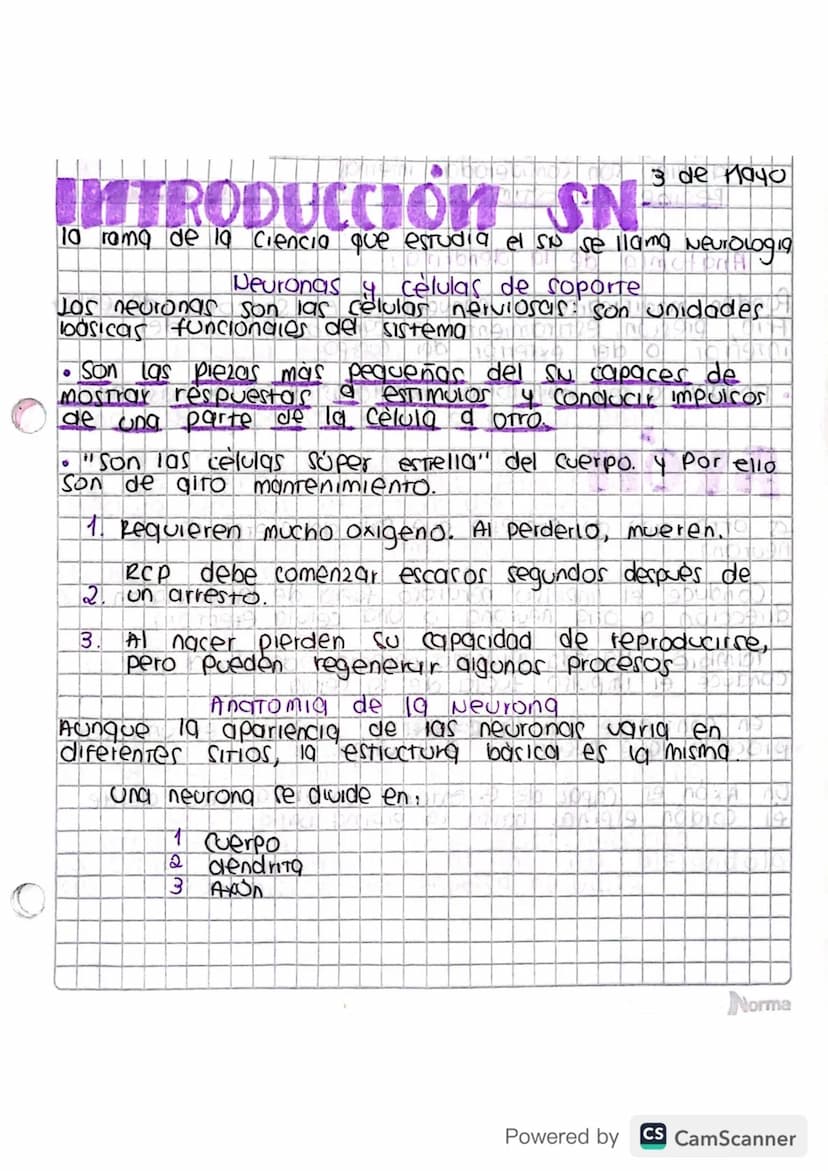 3 de Mayo
INTRODUCCIÓN SN
la rama de la Ciencia que estudia el SN se llama Neurologia
Neuronas y cèlulas de soporte
Las neuronas son las cèlulas nerviosas: son unidades
básicas funcionales del sistema
• Son las piezas màs pequeñas del SN capaces de
mostrar respuestas a estimulos y conducir impulsos
de una parte de la cèlula a otro.
• "Son las cèlulas súper estrella" del cuerpo. y por ello
son de alto mantenimiento.
1. Requieren mucho oxigeno. Al perderlo, mueren.
RCP debe comenzar escasos segundos despuès de
2. un arresto.
3. Al nacer pierden su capacidad de reproducirse,
pero pueden regenerar algunos procesos
Anatomia de la Neurona
Aunque la apariencia de las neuronas varia en
diferentes sitios, la estructura bàsica es la misma.
Una neurona se divide en:
1 Cuerpo
2 dendrita
3 Axón
Norma
Powered by CS CamScanner